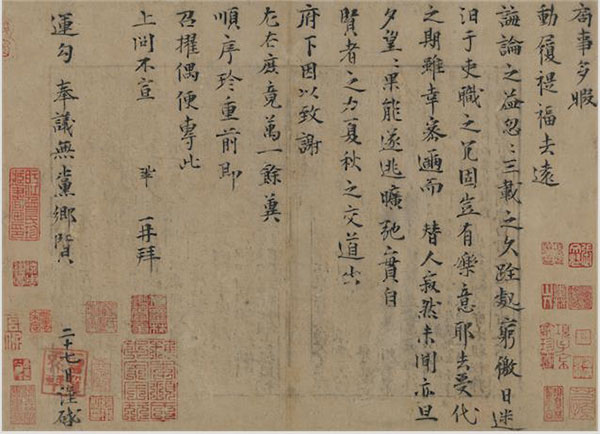 局事多暇
動履禔福去遠
誨論之益忽〻三載之久跧處窮徼日迷
汩于吏職之冗固豈有樂意耶去受代
之期雖幸密邇而 替人寂然未聞亦旦
夕望〻果能遂逃曠弛實自
賢者之力夏秋之交道出
府下因以致謝
左右庶竟萬一餘冀
順序珍重前即
召擢偶便專此
上問不宣 鞏 再拜
運勾 奉議無黨鄉賢 二十七日謹啓